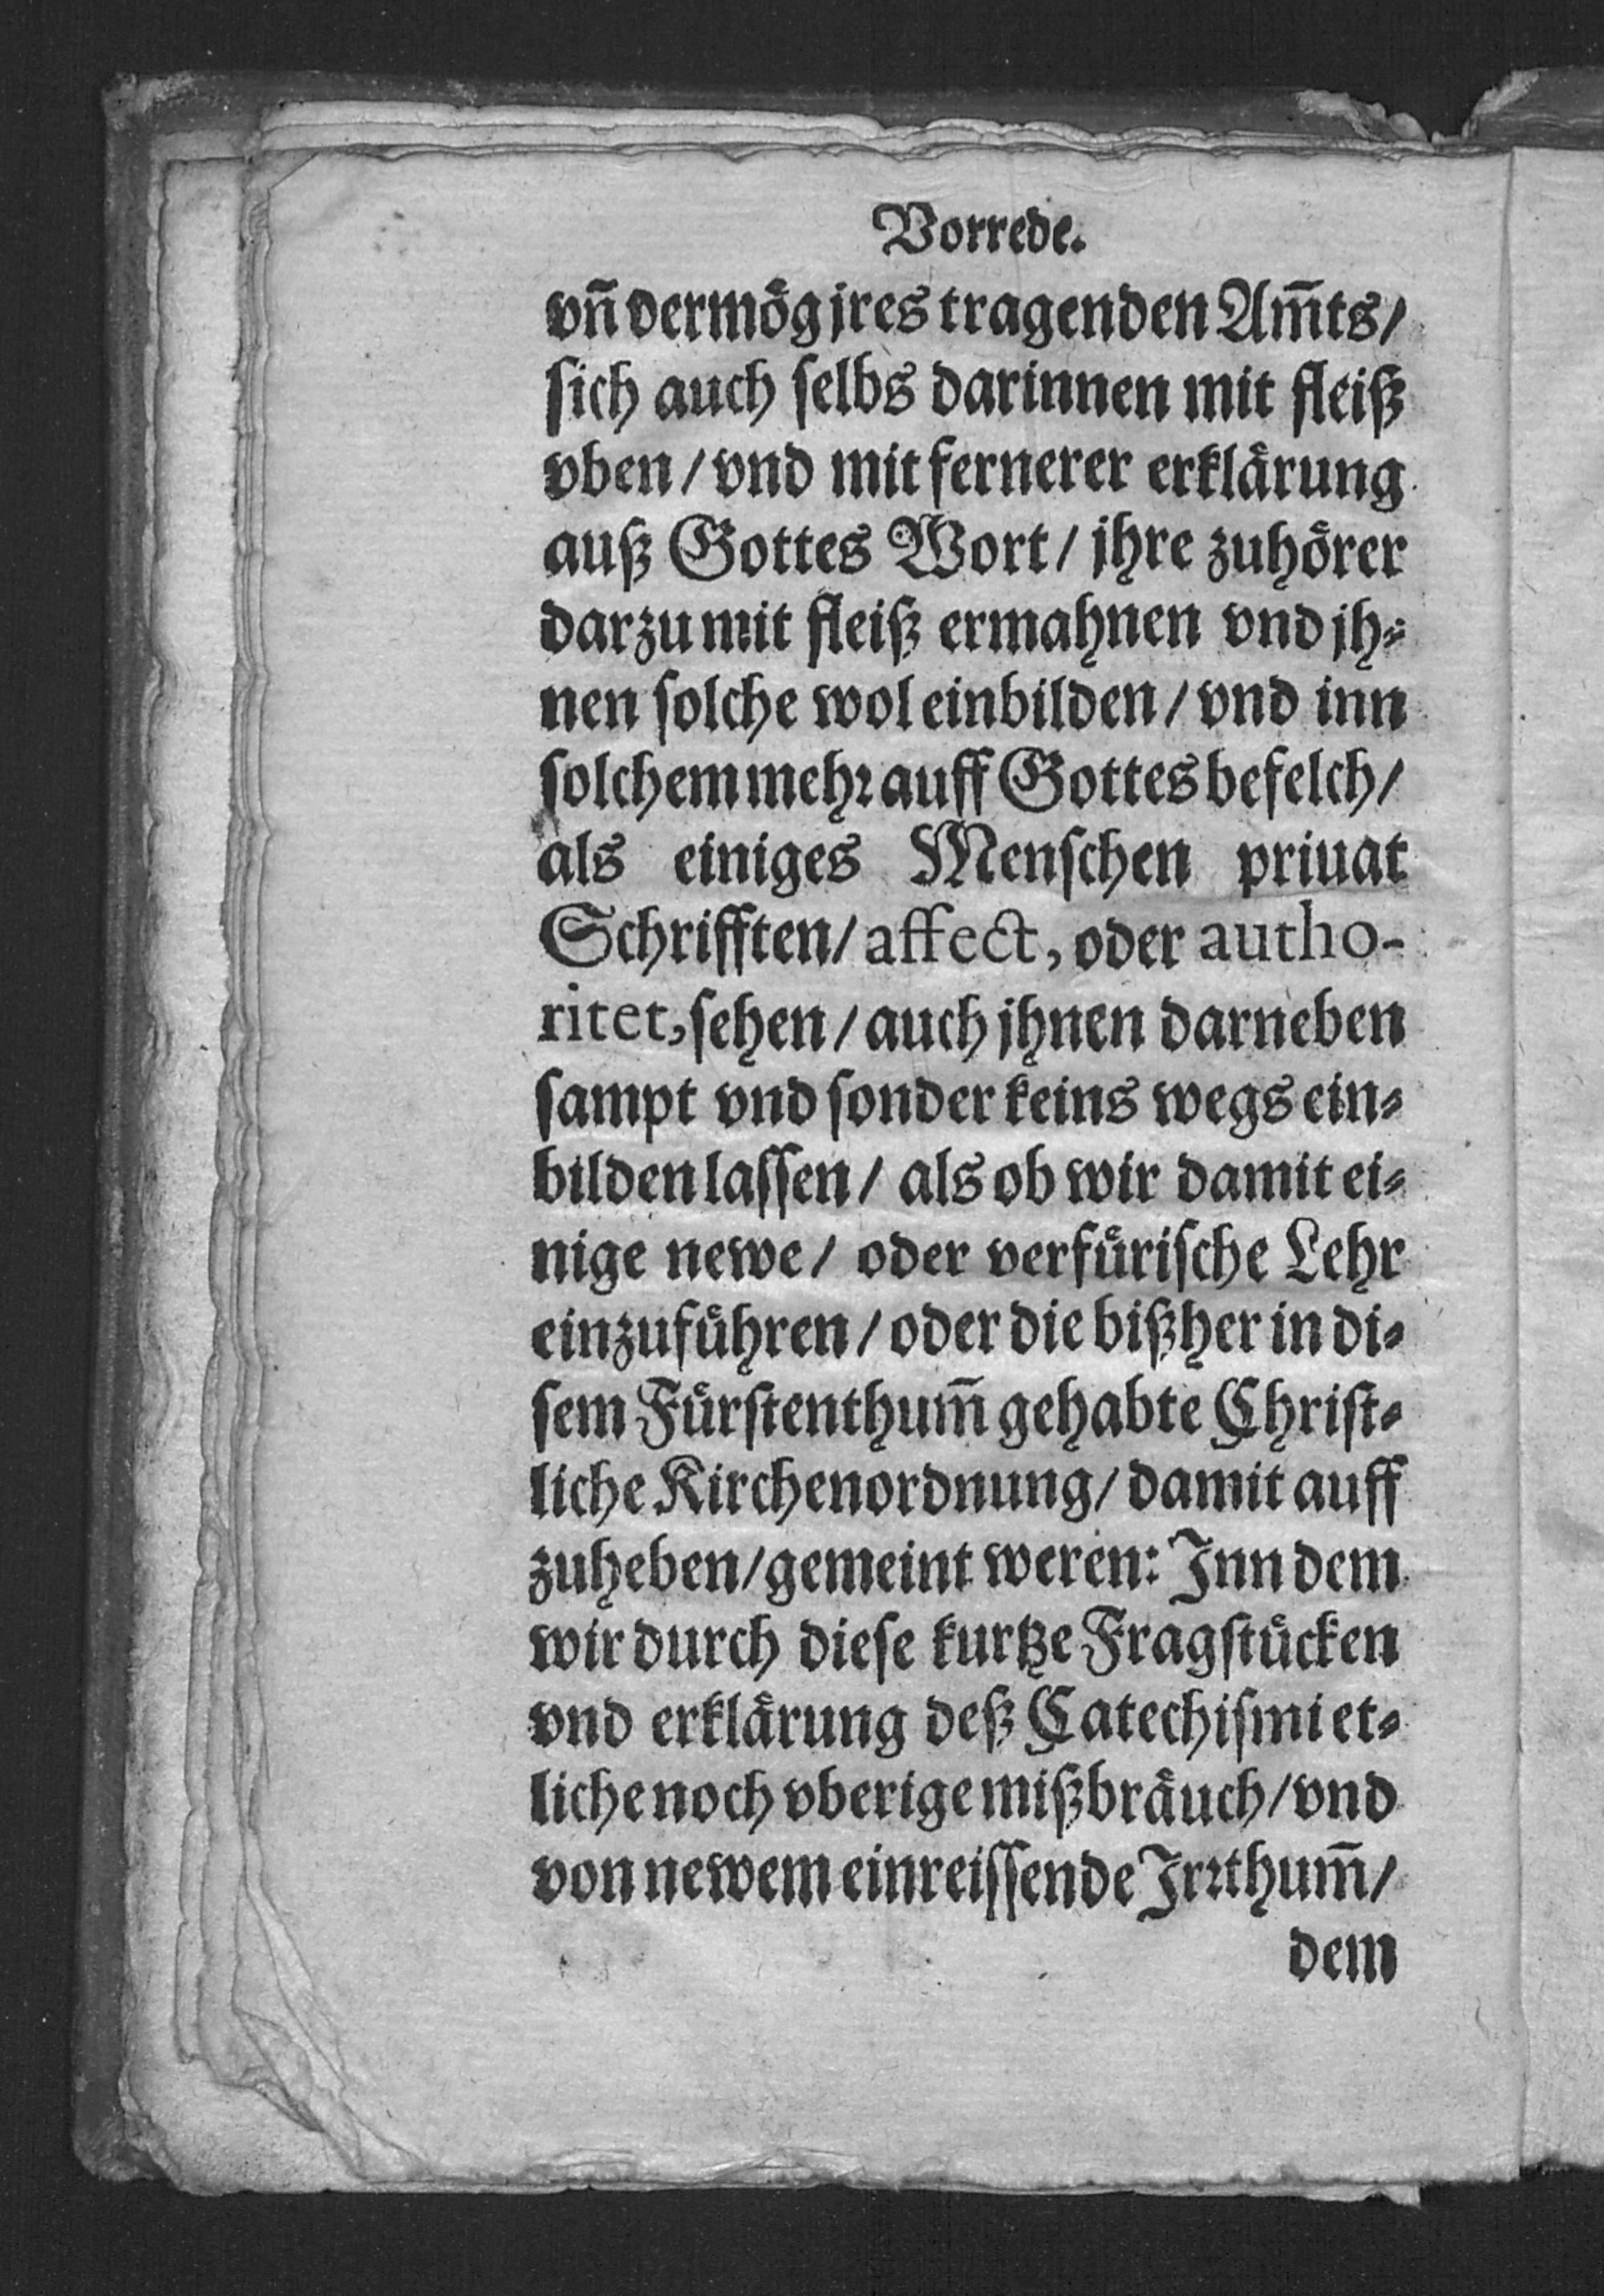 Vorrede.
vñ vermög jres tragenden Am̃ts/
sich auch selbs darinnen mit fleiß
vben/ vnd mit fernerer erklärung
auß Gottes Wort/ jhre zuhörer
darzu mit fleiß ermahnen vnd jh⸗
nen solche wol einbilden/ vnd inn
solchem mehr auff Gottes befelch/
als einiges Menschen priuat
Schrifften/ affect, oder autho-
ritet, sehen/ auch jhnen darneben
sampt vnd sonder keins wegs ein⸗
bilden lassen/ als ob wir damit ei⸗
nige newe/ oder verfürische Lehr
einzuführen/ oder die bißher in di⸗
sem Fürstenthum̃ gehabte Christ⸗
liche Kirchenordnung/ damit auff
zuheben/ gemeint weren: Inn dem
wir durch diese kurtze Fragstücken
vnd erklärung deß Catechismi et⸗
liche noch vberige mißbräuch/ vnd
von newem einreissende Irrthum̃/
dem